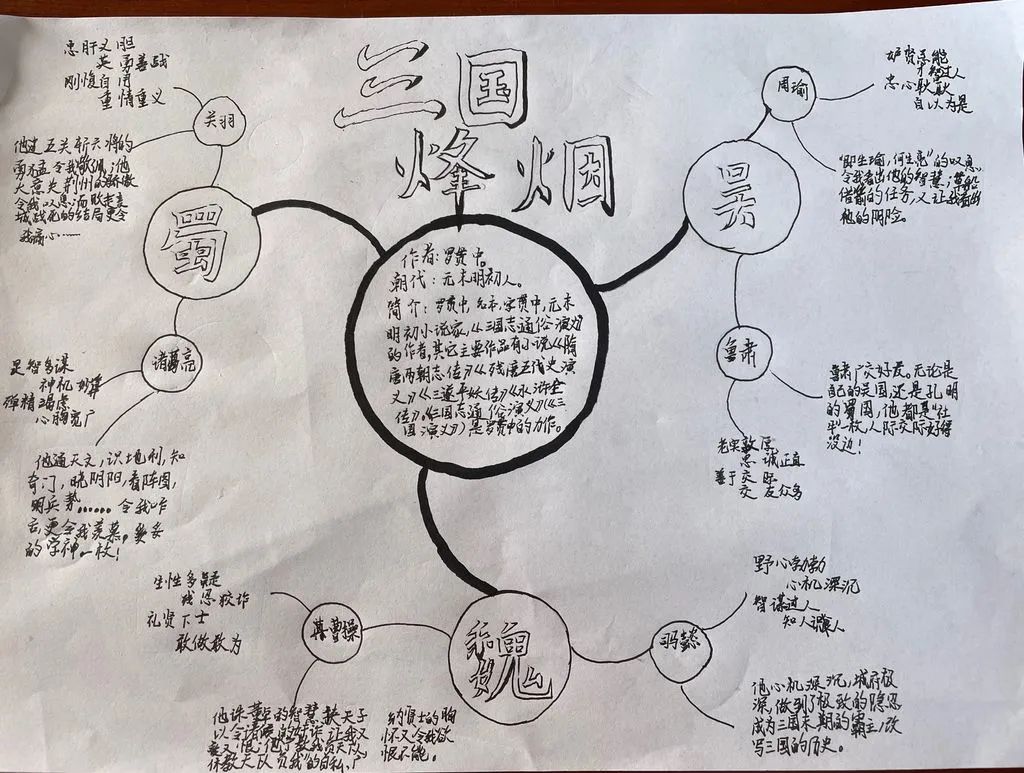 三国
烽烟
作者：罗贯中。
朝代：元末明初人。
简介：罗贯中，名本，字贯中，元末
明初小说家，《三国志通俗演义》
的作者，其它主要作品有小说《隋
唐两朝志传》《残唐五代史演
义》《三遂平妖传》《水浒全
传》。《三国志通俗演义》（《三
国演义》）是罗贯中的力作。
蜀
关羽
忠肝义胆
英勇善战
刚愎自用
重情重义
他过五关斩六将的
勇猛令我敬佩；他
大意失荆州的骄傲
令我叹息；而败走麦
城战死的结局更令
我痛心……
诸葛亮
足智多谋
神机妙算
殚精竭虑
心胸宽广
他通天文，识地利，知
奇门，晓阴阳，看阵图，
明兵势……令我咋
舌，更令我羡慕，妥妥
的学神一枚！
吴
周瑜
妒贤忌能
才智过人
忠心耿耿
自以为是
“即生瑜，何生亮”的叹息
令我看出他的智慧；草船
借箭的任务，又让我看出
他的阴险。
鲁肃
鲁肃广交好友，无论是
自己的吴国还是孔明
的蜀国，他都是“社
牛”一枚，人际交际好得
没边！
老实敦厚
忠诚正直
善于交际
交友众多
魏
曹操
生性多疑
残忍狡诈
礼贤下士
敢做敢为
他诛董卓的智慧，挟天子
以令诸侯的奸诈让我又
爱又恨；他宁教我负天下人，
休教天下人负我”的自私，广
纳贤士的胸
怀又令我欲
恨不能。
司马懿
野心勃勃
心机深沉
智谋过人
知人识人
他心机深沉，城府极
深，做到了极致的隐忍
成为三国末期的霸主，改
写三国的历史。